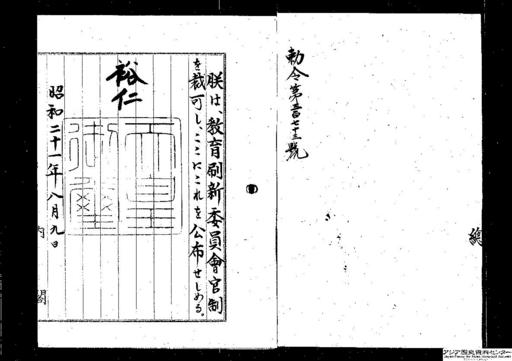 勅令第三百七十三號
朕は、教育刷新委員會官制
を裁可し、ここにこれを公布せしめる。
裕仁
天皇
御璽
昭和二十一年八月九日
内閣
アジア歴史資料センター
Japan Center for Asian Historical Records